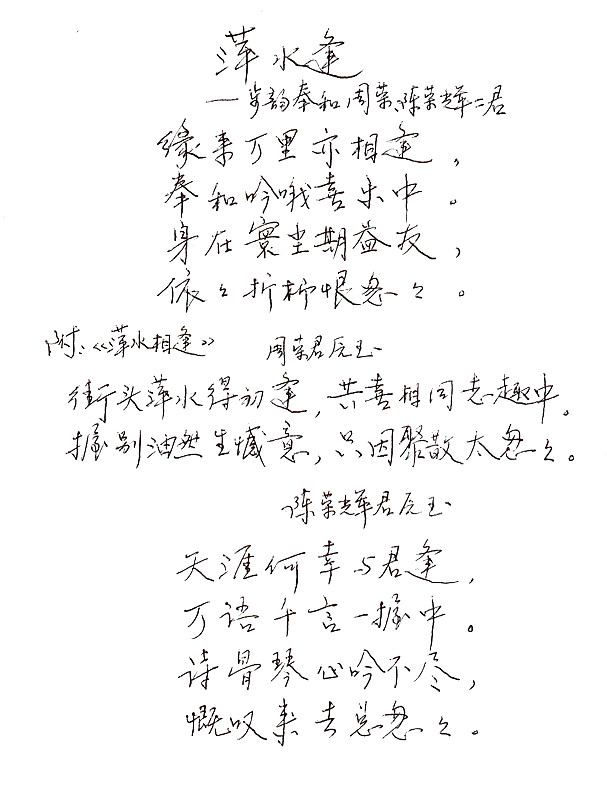 萍水逢
——步韵奉和周荣、陈荣辉二君
缘来万里亦相逢，
奉和吟哦喜乐中。
身在寰尘期益友，
依々折柳恨匆々。
附：《萍水相逢》 周荣君原玉
街头萍水得初逢，共喜相同志趣中。
握别油然生憾意，只因聚散太匆々。
陈荣辉君原玉
天涯何幸与君逢，
万语千言一握中。
诗骨琴心吟不尽，
慨叹来去总匆々。